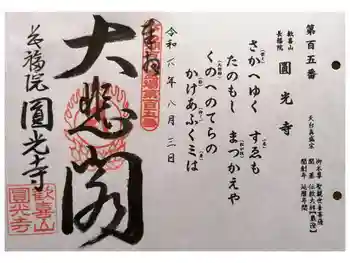 第百五番
歓喜山
長福院
圓光寺
天台真盛宗
御本尊 聖観世音菩薩
開基 伝教大師【最澄】
開創年 延暦年間
さかへゆく すゑも
たのもし まつかえや
くのへのてらの
かけあふくミは
令和六年八月三日
奉拝
大悲閣
長福院 圓光寺
歓喜山
圓光寺